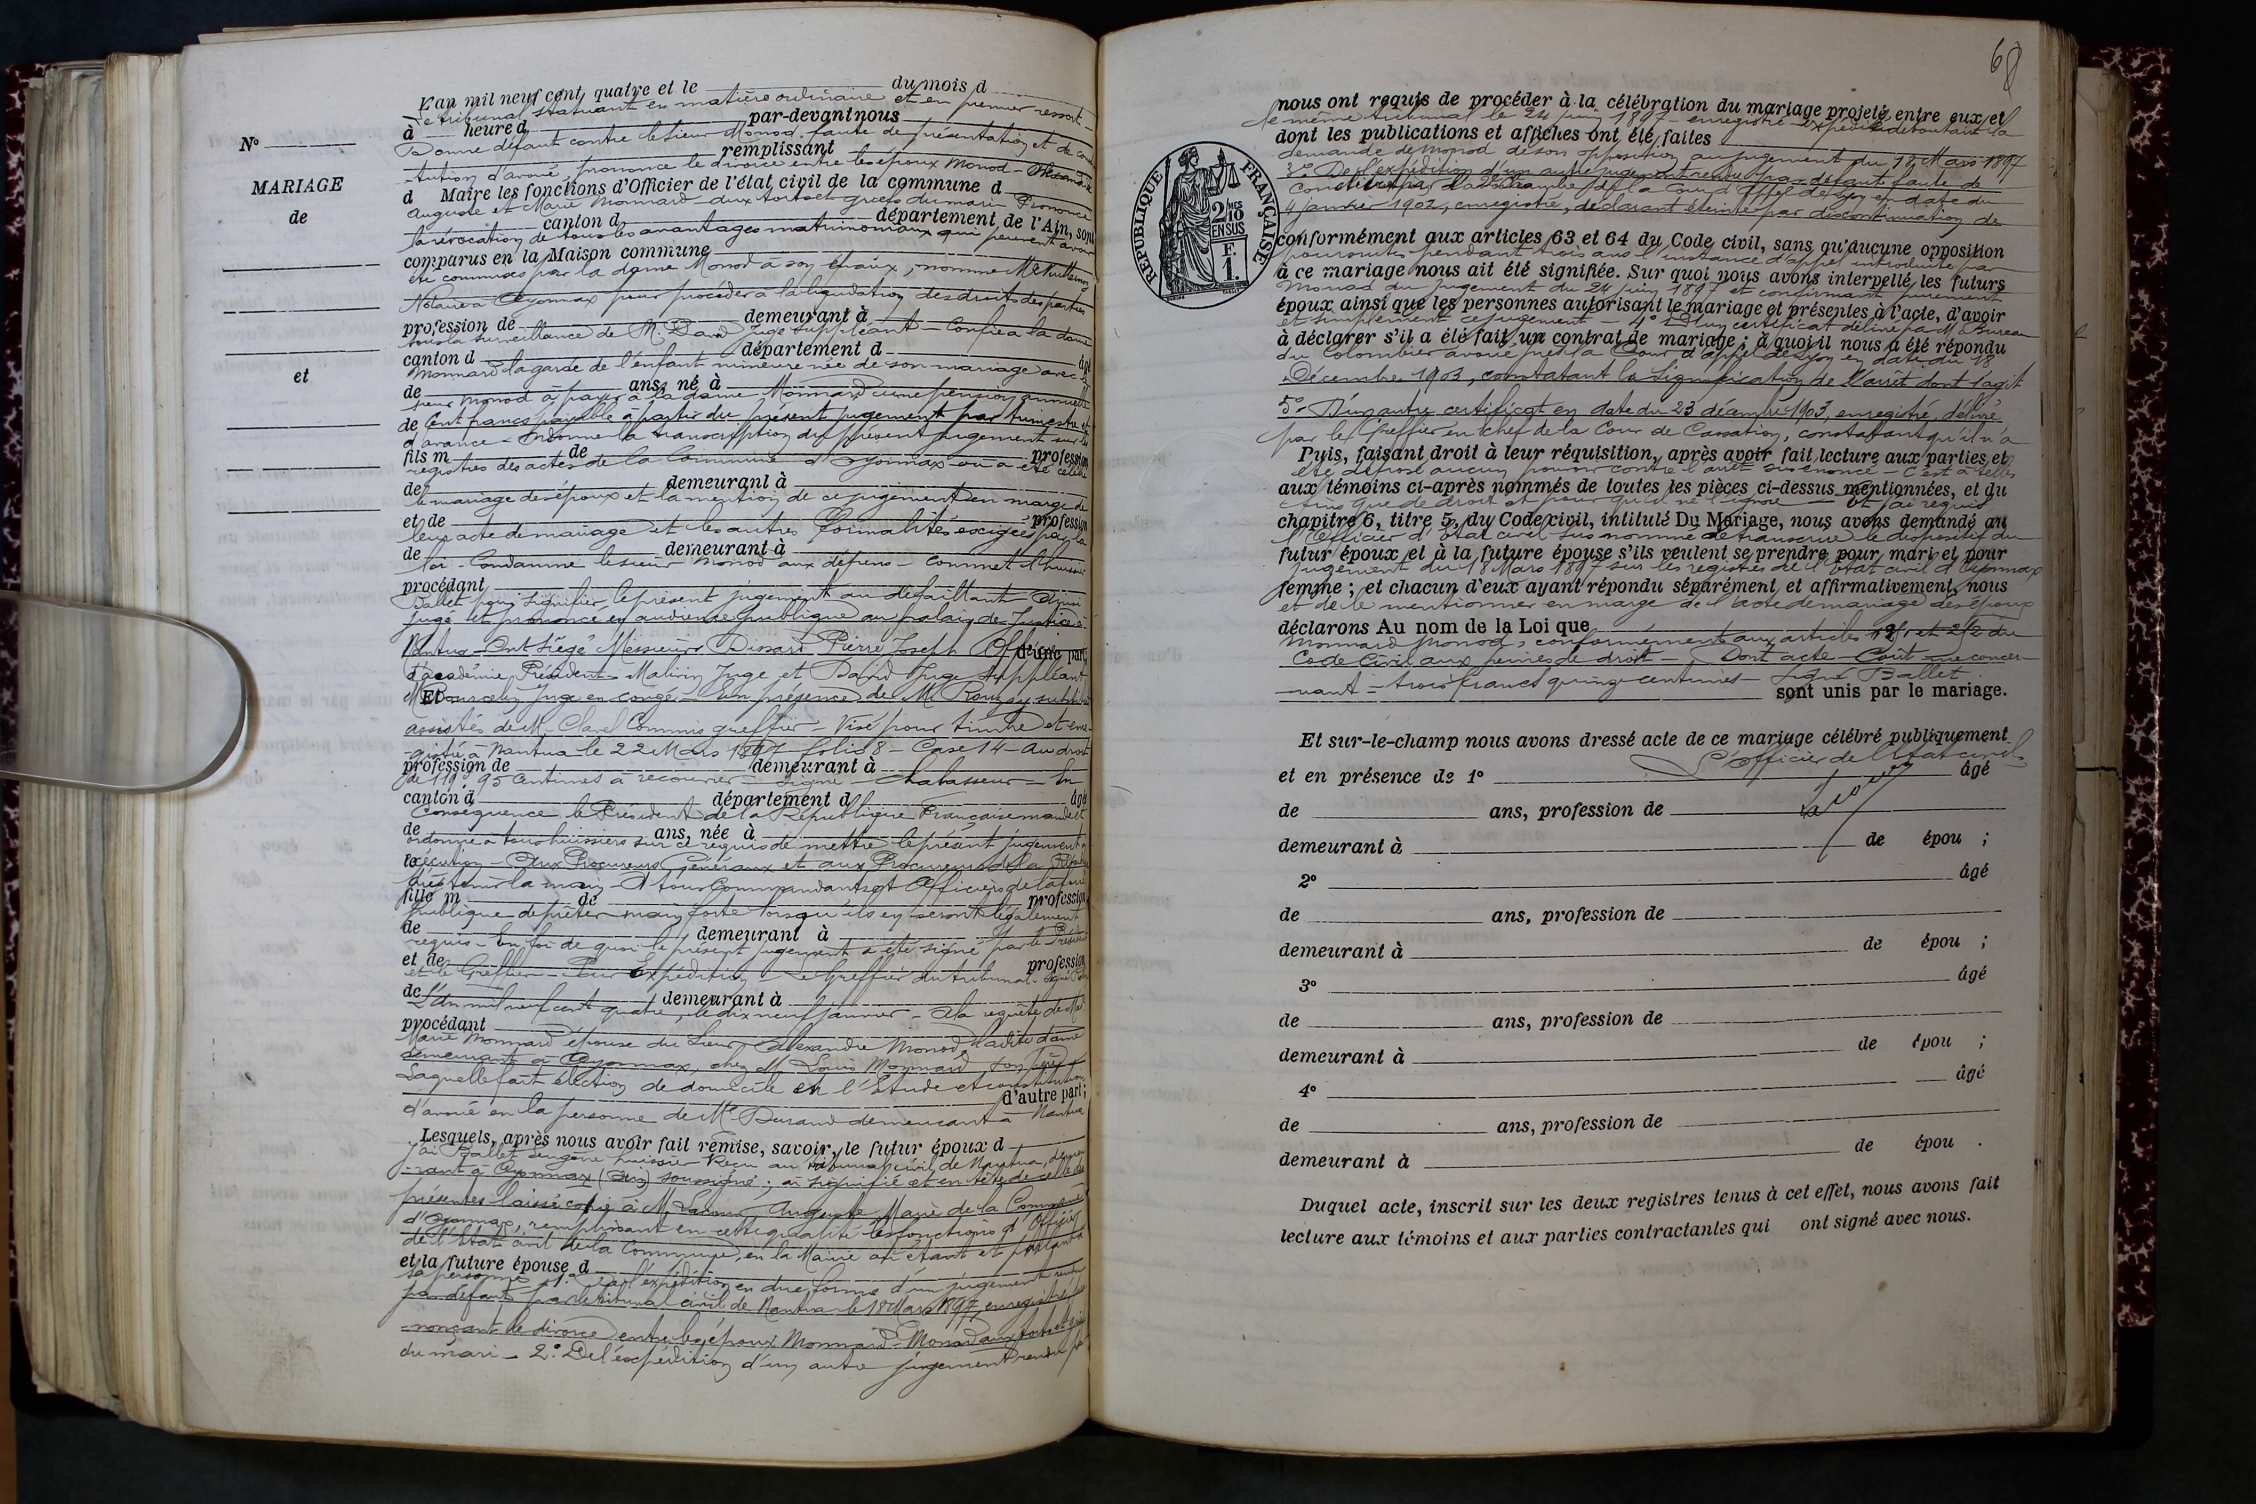 L'an mil neuf cent quatre et le du mois d
Le tribunal statuant en matière ordinaire et en premier ressort
à heure d par-devant nous
Donne défaut contre le sieur Monod faute de présentation et de cons
N° remplissant
-titution d'avoué, prononce le divorce entre les époux Monod - Alexandre
MARIAGE
d Maire les fonctions d'Officier de l'état civil de la commune d
Auguste et Marie Monnard aux torts et griefs du mari Prononce
de
canton d département de l'Ain, sont
la révocation de tous les avantages matrimoniaux qui peuvent avoir
comparus en la Maison commune
été consentis par la dame Monod à son époux, nomme Me
Notaire à Oyonnax pour procéder à la liquidation des droits des parties
profession de demeurant à
sous la surveillance de M. David Juge suppléant - Confie à la dame
canton d département d âgé
Monnard la garde de l'enfant mineure née de son mariage avec
et
de ans, né à
sieur Monod à payer à la dame Monnard une pension annuelle
de Cent francs payable à partir du présent jugement par trimestre et
d'avance - Ordonne la transcription du présent jugement sur les
fils m de profession
registres des actes de la Commune d'Oyonnax où a été célébré
de demeurant à
le mariage des époux et la mention de ce jugement en marge de
et de profession
leur acte de mariage et les autres formalités exigées par la
de demeurant à
loi - Condamne le sieur Monod aux dépens - Commet l'huissier
procédant
Ballet pour signifier le présent jugement au défaillant - Ainsi
jugé et prononcé en audience publique au palais de Justice à
Nantua - Ont siégé Messieurs Dissard Pierre Joseph Officier
d'une part,
d'académie, Président - Mathirin Juge et David Juge suppléant
Et
Juge en congé - En présence de M. substitut
assistés de M. Clavel Commis greffier - Visé pour timbre et enre-
-gistré à Nantua le 22 Mars 1897 folio 8 - Case 14 - Au droit
profession de demeurant à
de 119 95 Centimes à recouvrer - Signé Chabasseur - En
canton d département d âgée
Conséquence le Président de la République Française mande et
de ans, née à
ordonne à tous huissiers sur ce requis de mettre le présent jugement à
exécution - Aux Procureurs Généraux et aux Procureurs de la République
d'y tenir la main - A tous Commandants et Officiers de la force
fille m de profession
publique de prêter main forte lorsqu'ils en seront légalement
de demeurant à
requis - En foi de quoi le présent jugement a été signé par le Président
et de profession
et le Greffier - Pour Expédition - Le Greffier du tribunal - Signé
de demeurant à
L'An mil neuf cent quatre, le dix neuf Janvier - A la requête de Mme
procédant
Marie Monnard épouse du Sieur Alexandre Monod, ladite dame
demeurant à Oyonnax, chez M. Louis Monnard, son Père
Laquelle fait élection de domicile en l'Etude et constitution
d'autre part ;
d'avoué en la personne de Me Durand demeurant à Nantua
Lesquels, après nous avoir fait remise, savoir, le futur époux d
J'ai Ballet Eugène huissier reçu au tribunal civil de Nantua, demeu-
-rant à Oyonnax (Ain) soussigné ; ai signifié et en tête de celle des
présentes laissé copie à M. Lacour Auguste Maire de la Commune
d'Oyonnax, remplissant en cette qualité les fonctions d'Officier
de l'Etat civil de la Commune, en la Mairie où étant et parlant à
et la future épouse d
sa personne 1° De l'expédition en due forme d'un jugement rendu
par défaut par le tribunal civil de Nantua le 18 Mars 1897, enregistré, pro-
-nonçant le divorce entre les époux Monnard - Monod aux torts et griefs
du mari - 2° De l'expédition d'un autre jugement rendu par
68
nous ont requis de procéder à la célébration du mariage projeté entre eux et
le même tribunal le 24 juin 1897 - enregistré - expédié déboutant la
dont les publications et affiches ont été faites
demande de Monod de son opposition au jugement du 18 Mars 1897
3° De l'expédition d'un autre jugement rendu par défaut faute de
par la 2e Chambre de la Cour d'Appel de Lyon en date du
4 Janvier 1902, enregistré, déclarant éteinte par discontinuation de
REPUBLIQUE FRANÇAISE
2/10 EN SUS
F. 1.
conformément aux articles 63 et 64 du Code civil, sans qu'aucune opposition
poursuites pendant trois ans l'instance d'appel introduite par
à ce mariage nous ait été signifiée. Sur quoi nous avons interpellé les futurs
Monod du jugement du 24 juin 1897 et confirmant purement
époux ainsi que les personnes autorisant le mariage et présentes à l'acte, d'avoir
et simplement ce jugement - 4° D'un certificat délivré par M. Bureau
à déclarer s'il a été fait un contrat de mariage ; à quoi il nous a été répondu
du Colombier avoué près la Cour d'appel de Lyon en date du 18
Décembre 1903, constatant la signification de l'arrêt dont s'agit
5° - D'un autre certificat en date du 23 décembre 1903, enregistré, délivré
par le Greffier en chef de la Cour de Cassation, constatant qu'il n'a
Puis, faisant droit à leur réquisition, après avoir fait lecture aux parties et
été déposé aucun pourvoi contre l'arrêt sus énoncé - C'est à telles
aux témoins ci-après nommés de toutes les pièces ci-dessus mentionnées, et du
fins que de droit et pour qu'il ne l'ignore - Et j'ai requis
chapitre 6, titre 5, du Code civil, intitulé Du Mariage, nous avons demandé au
l'Officier d'Etat civil sus nommé de transcrire le dispositif du
futur époux et à la future épouse s'ils veulent se prendre pour mari et pour
jugement du 18 Mars 1897 sur les registres de l'Etat civil d'Oyonnax
femme ; et chacun d'eux ayant répondu séparément et affirmativement, nous
et de le mentionner en marge de l'acte de mariage des époux
déclarons Au nom de la Loi que
Monnard Monod, conformément aux articles 251 et 252 du
Code Civil aux peines de droit - Dont acte - Coût me concer-
-nant - trois francs quinze centimes - Signé Ballet
sont unis par le mariage.
Et sur-le-champ nous avons dressé acte de ce mariage célébré publiquement
L'Officier de l'Etat civil
et en présence de 1° âgé
de ans, profession de
demeurant à de épou ;
2° âgé
de ans, profession de
demeurant à de épou ;
3° âgé
de ans, profession de
demeurant à de épou ;
4° âgé
de ans, profession de
demeurant à de épou .
Duquel acte, inscrit sur les deux registres tenus à cet effet, nous avons fait
lecture aux témoins et aux parties contractantes qui ont signé avec nous.